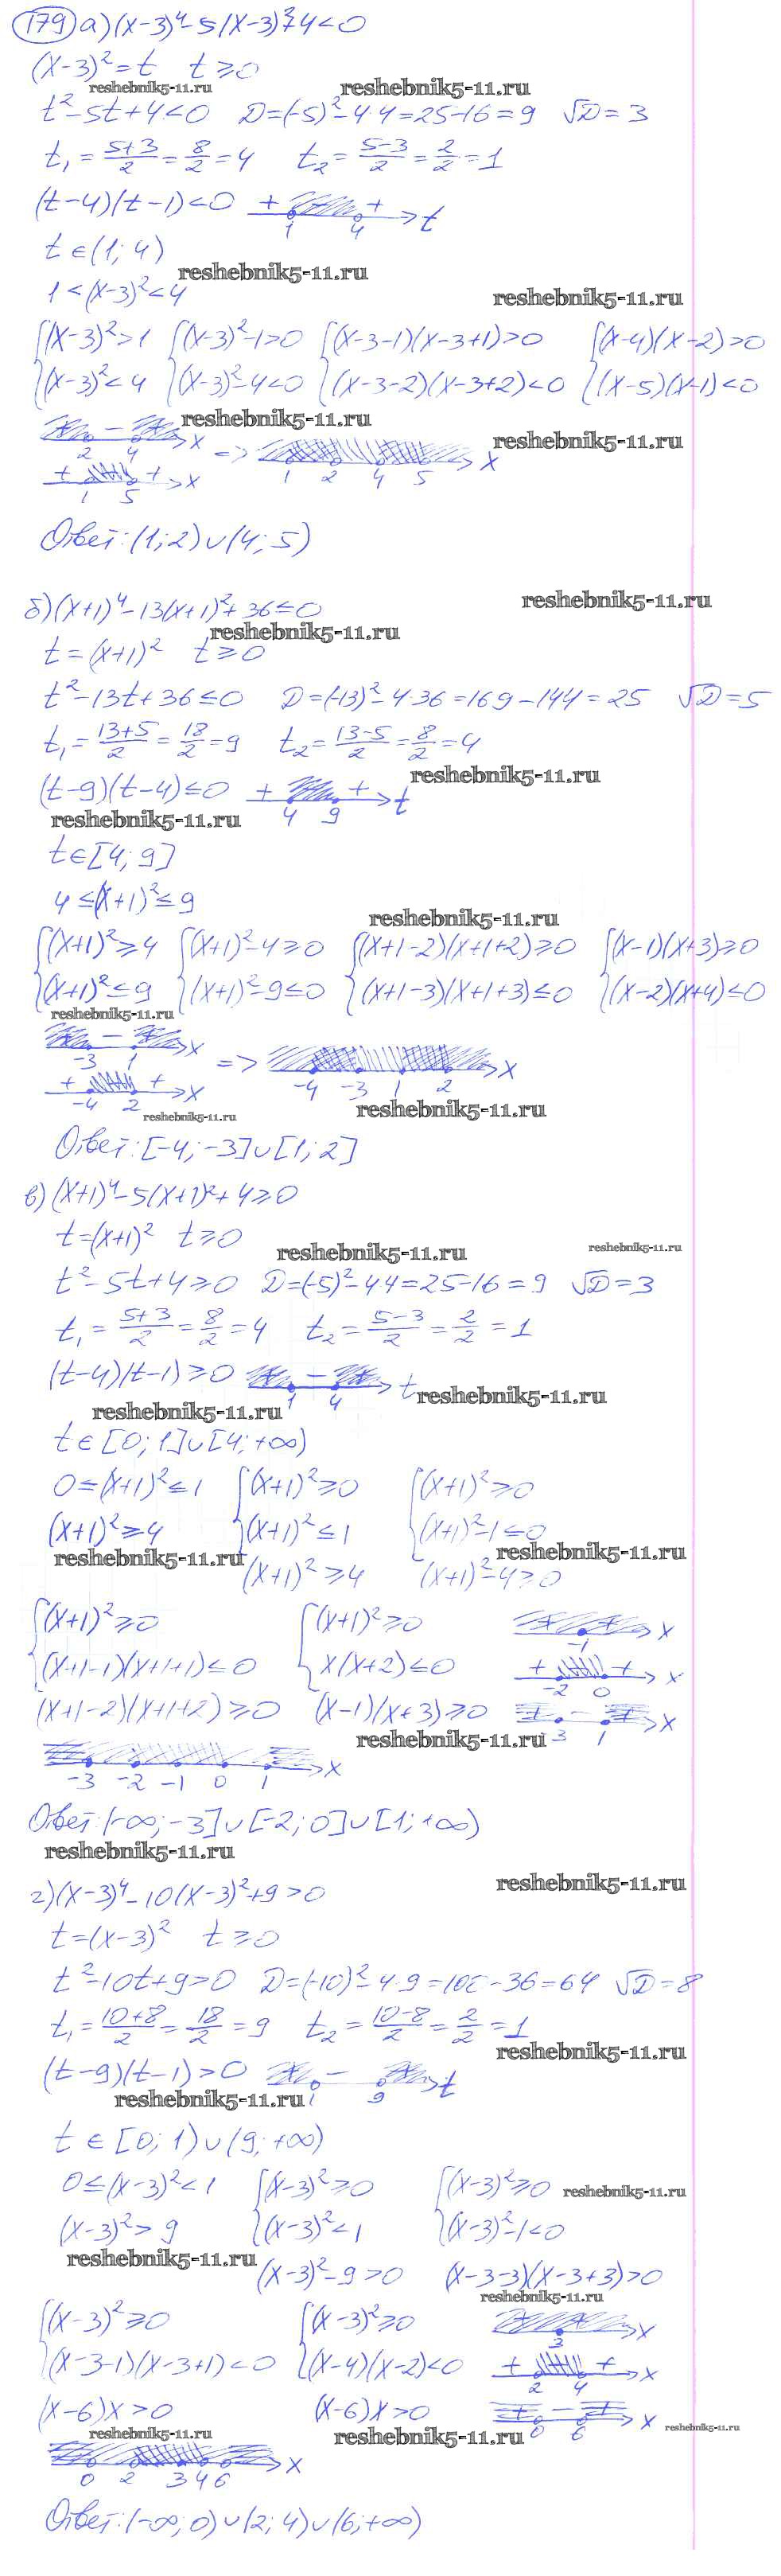 179 а) (x-3)⁴-5(x-3)²+4<0
(x-3)²=t t≥0
reshebnik5-11.ru reshebnik5-11.ru
t²-5t+4<0 D=(-5)²-4·4=25-16=9 √D=3
t₁=(5+3)/2=8/2=4 t₂=(5-3)/2=2/2=1
(t-4)(t-1)<0 + + 1 4 t
t∈(1;4)
reshebnik5-11.ru
1<(x-3)²<4
reshebnik5-11.ru
{(x-3)²>1 {(x-3)²-1>0 {(x-3-1)(x-3+1)>0 {(x-4)(x-2)>0
{(x-3)²<4 {(x-3)²-4<0 {(x-3-2)(x-3+2)<0 {(x-5)(x-1)<0
reshebnik5-11.ru
+ - + 2 4 x => 1 2 4 5 x
reshebnik5-11.ru
+ + 1 5 x
Ответ: (1;2)∪(4;5)
reshebnik5-11.ru
б) (x+1)⁴-13(x+1)²+36≤0
reshebnik5-11.ru
t=(x+1)² t≥0
t²-13t+36≤0 D=(-13)²-4·36=169-144=25 √D=5
t₁=(13+5)/2=18/2=9 t₂=(13-5)/2=8/2=4
reshebnik5-11.ru
(t-9)(t-4)≤0 + + 4 9 t
reshebnik5-11.ru
t∈[4;9]
4≤(x+1)²≤9
reshebnik5-11.ru
{(x+1)²≥4 {(x+1)²-4≥0 {(x+1-2)(x+1+2)≥0 {(x-1)(x+3)≥0
{(x+1)²≤9 {(x+1)²-9≤0 {(x+1-3)(x+1+3)≤0 {(x-2)(x+4)≤0
reshebnik5-11.ru
+ - + -3 1 x => -4 -3 1 2 x
+ + -4 2 x
reshebnik5-11.ru reshebnik5-11.ru
Ответ: [-4;-3]∪[1;2]
в) (x+1)⁴-5(x+1)²+4≥0
t=(x+1)² t≥0
reshebnik5-11.ru reshebnik5-11.ru
t²-5t+4≥0 D=(-5)²-4·4=25-16=9 √D=3
t₁=(5+3)/2=8/2=4 t₂=(5-3)/2=2/2=1
(t-4)(t-1)≥0 + - + 1 4 t
reshebnik5-11.ru
reshebnik5-11.ru
t∈[0;1]∪[4;+∞)
0≤(x+1)²≤1 {(x+1)²≥0 {(x+1)²≥0
(x+1)²≥4 {(x+1)²≤1 {(x+1)²-1≤0
reshebnik5-11.ru reshebnik5-11.ru
(x+1)²≥4 (x+1)²-4≥0
{(x+1)²≥0 {(x+1)²≥0 + + -1 x
{(x+1-1)(x+1+1)≤0 {x(x+2)≤0 + + -2 0 x
(x+1-2)(x+1+2)≥0 (x-1)(x+3)≥0 + - + 3 1 x
reshebnik5-11.ru
-3 -2 -1 0 1 x
Ответ: (-∞;-3]∪[-2;0]∪[1;+∞)
reshebnik5-11.ru
reshebnik5-11.ru
г) (x-3)⁴-10(x-3)²+9>0
t=(x-3)² t≥0
t²-10t+9>0 D=(-10)²-4·9=100-36=64 √D=8
t₁=(10+8)/2=18/2=9 t₂=(10-8)/2=2/2=1
reshebnik5-11.ru
(t-9)(t-1)>0 + - + 1 9 t
reshebnik5-11.ru
t∈[0;1)∪(9;+∞)
0≤(x-3)²<1 {(x-3)²≥0 {(x-3)²≥0
reshebnik5-11.ru
(x-3)²>9 {(x-3)²<1 {(x-3)²-1<0
reshebnik5-11.ru
(x-3)²-9>0 (x-3-3)(x-3+3)>0
reshebnik5-11.ru
{(x-3)²≥0 {(x-3)²≥0 3 x
{(x-3-1)(x-3+1)<0 {(x-4)(x-2)<0 + + 2 4 x
(x-6)x>0 (x-6)x>0 + - + 0 6 x
reshebnik5-11.ru reshebnik5-11.ru reshebnik5-11.ru
0 2 3 4 6 x
Ответ: (-∞;0)∪(2;4)∪(6;+∞)